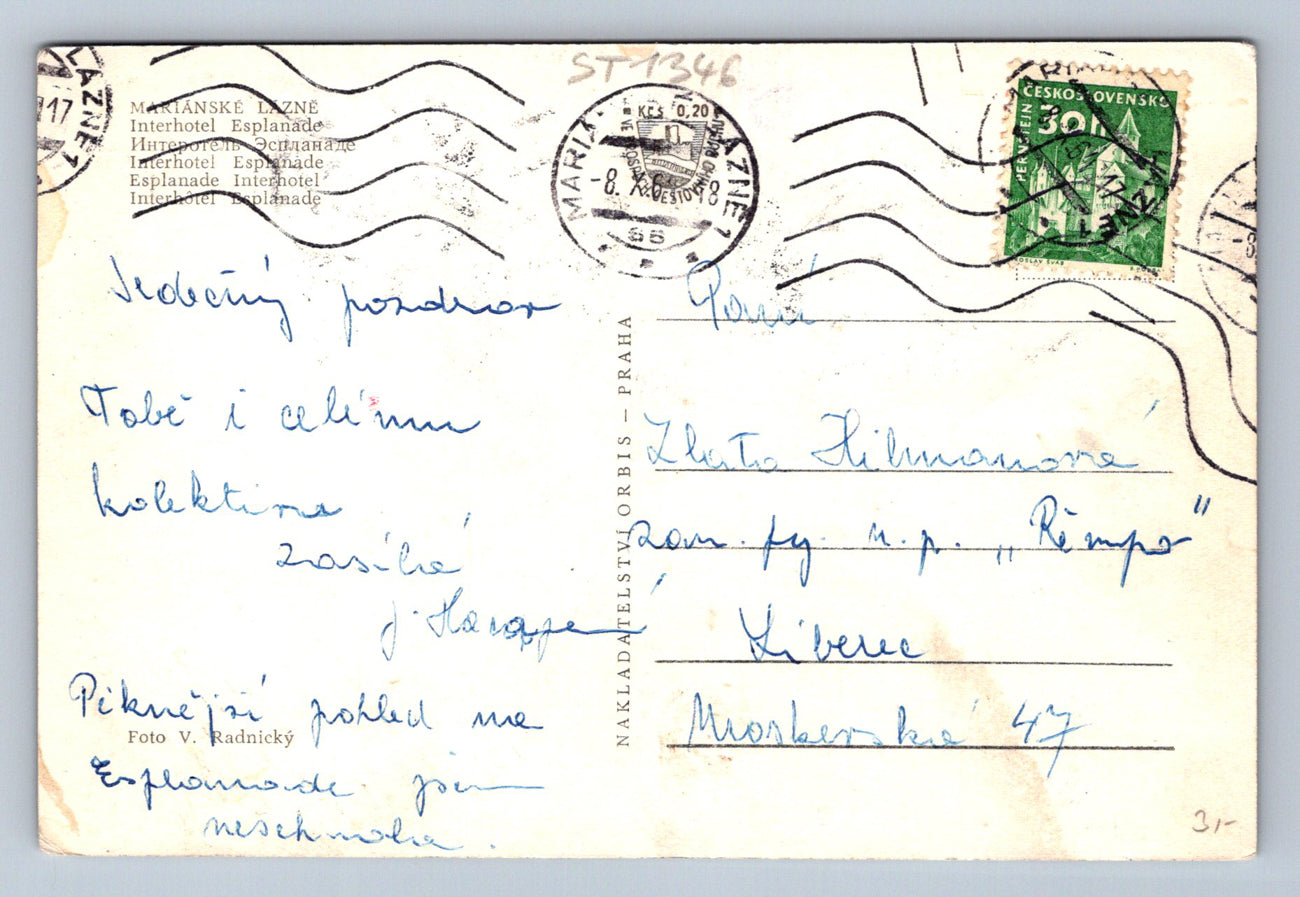 ST 1346
MARIÁNSKÉ LÁZNĚ
Interhotel Esplanade
Интеротель Эспланаде
Interhotel Esplanade
Esplanade Interhotel
Interhôtel Esplanade
LÁZNĚ 1
17
KČS 0,20
LÁZNĚ 1
-8. 18
ČESKOSLOVENSKO
30 h
PERNŠTEJN
LÁZNĚ 1
Srdečný pozdrav
Tobě i celému
kolektivu
zasílá
J.
Pěknější pohled na
Esplanade jsem
nesehnala.
Foto V. Radnický
NAKLADATELSTVÍ ORBIS — PRAHA
Paní
Zlata Hilmanová
zam. fy. n. p. „Rempo"
Liberec
Moskevská 47
3,-